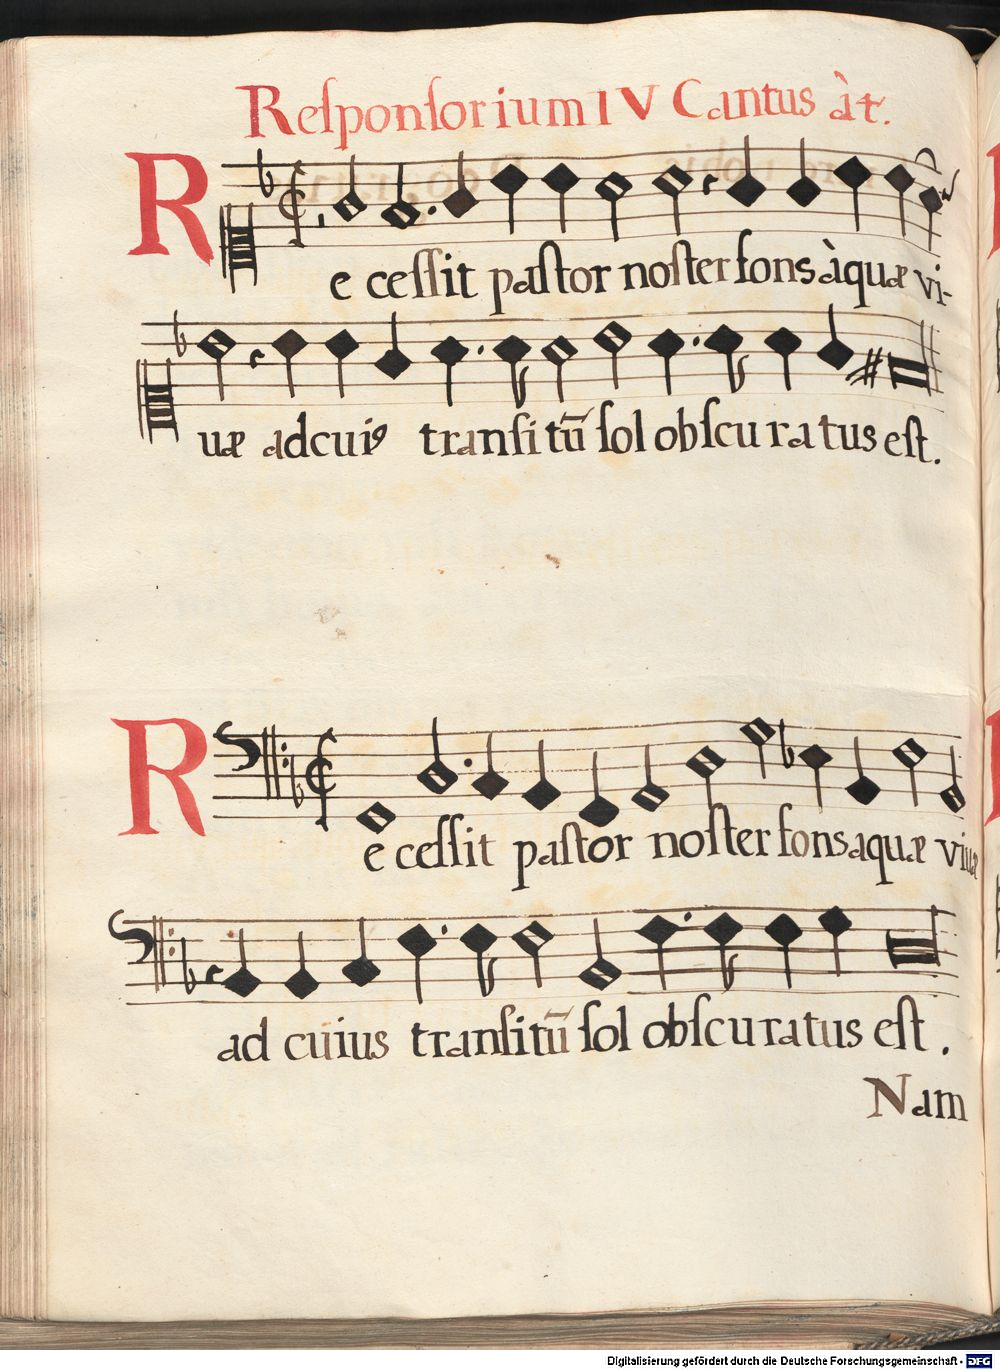 Reſponſorium IV Cantus àt.
Re ceſſit paſtor noſter fons àquæ vi-
uæ ad cuiꝰ tranſitū ſol obſcuratus eſt.
Re ceſſit paſtor noſter fons aquæ viuæ
ad cuius tranſitū ſol obſcuratus eſt.
Nam
Digitalisierung gefördert durch die Deutsche Forschungsgemeinschaft - DFG